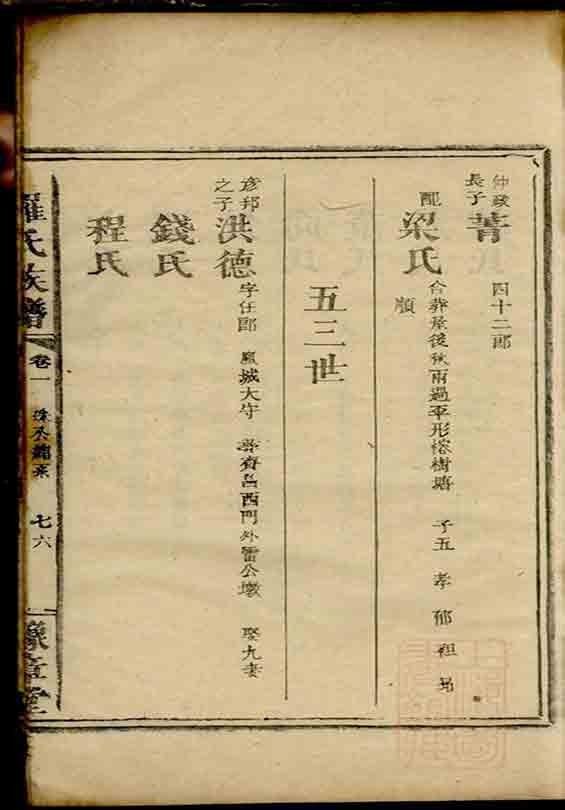 仲政長子 菁 四十二郎
配 梁氏 合葬屋後狄雨過平形榕樹塘 子五 孝 郁 祖 昂
順
五三世
彥邦之子 洪德 字任郎 城大守 葬賓昌西門外雷公墩 娶九妻
錢氏
程氏
羅氏族譜 卷一 七六 豫章堂